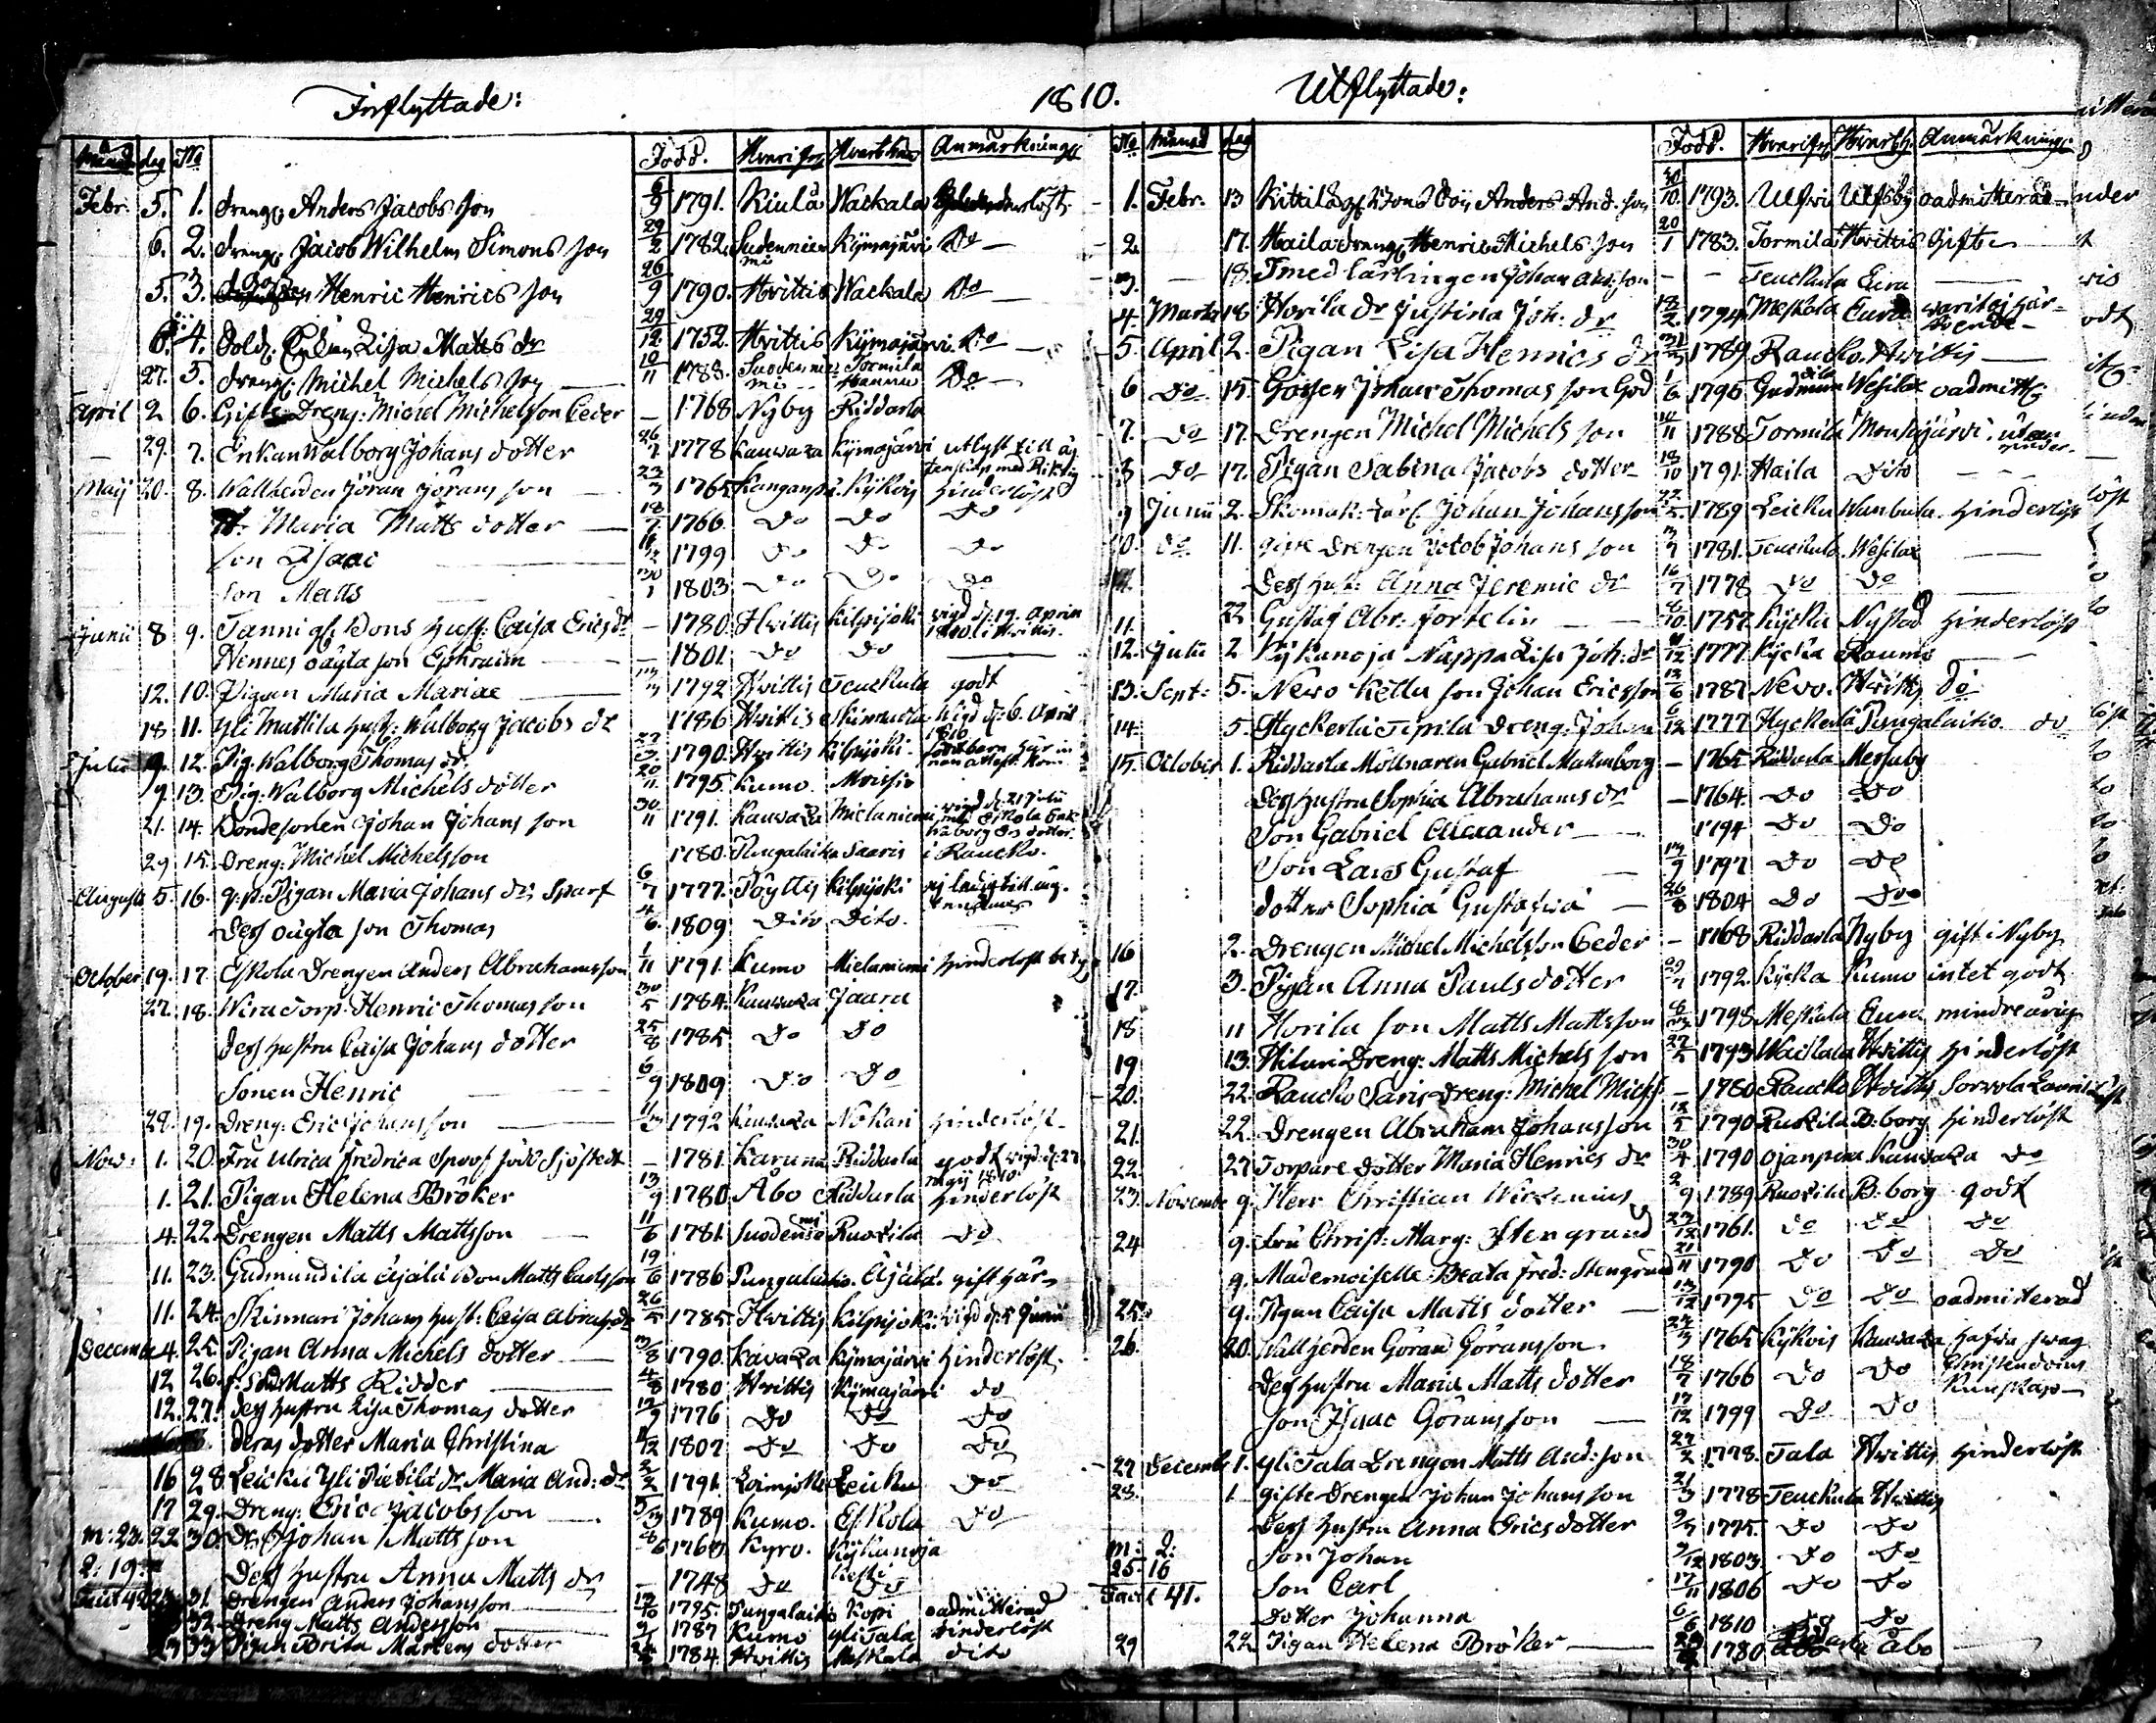 Inflyttade:
1810.
Månad dag No Född. Hvarifr. Hvart. Anmärkning
Febr. 5. 1. Dreng: Anders Jacobs son 6/9 1791. Kiula Wackala
6. 2. Dreng: Jacob Wilhelm Simons son 29/2 1782. Sudenniemi Kÿmajärvi Do
5. 3. Henric Henrics son 26/9 1790. Hvittis Wackala Do
6. 4. Sold: Enkan Lisa Matts dr 29/12 1752. Hvittis Kÿmajärvi Do
27. 5. Dreng: Michel Michels son 10/11 1788. Suodenniemi Tormila Hannu Do
April 2 6. Gifte Dreng: Michel Michelsson Ceder — 1768 Nyby Riddarla
29. 7. Enkan Walborg Johans dotter 26/7 1778 Kauwaza Kÿmajärvi utlyst till äg
tenskap med
Maÿ 20. 8. Wallherden Jöran Jörans son 23/3 1765 Kanganpä Kÿkois hinderlöst
H: Maria Matts dotter 18/7 1766. Do Do Do
son Isaac 1799 Do Do Do
son Matts 30/1 1803 Do Do Do
Junii 8 9. Tanni Bons hust: Caisa Erics dr — 1780. Hvittis Kilpijoki vigd d: 19. April
1810 i Hvittis.
Hennes oägta son Ephraim — 1801. Do Do
12. 10. Pigan Maria Mariae 1792 Hvittis Teuckula godt
18 11. Yli Mattila hust: Walborg Jacobs dr 1786 Hvittis Skinnarla Vigd d: 6. April
1810
Julii 9. 12. Pig. Walborg Thomas dr. 27/3 1790. Hvittis Kilpijoki.
9. 13. Pig: Walborg Michels dotter 20/11 1795. Kumo. Moisio
21. 14. Bondesonen Johan Johans son 30/11 1791. Kauwaza Mielaniemi vigd d: 21 Julii
29 15. Dreng: Michel Michelsson 1780. Pungalaitio Saaris i Raucko.
Augusti 5. 16. Pigan Maria Johans dr Sparf 6/7 1777. Pöyttis Kilpijoki ej ledig till äg-
tenskap
Dess oägta son Thomas 4/6 1809 Dito Dito.
October 19. 17. Eskola Drengen Anders Abrahamsson 1/11 1791. Kumo Mielaniemi hinderlöst
27. 18. Wira Torp: Henric Thomas son 30/5 1784. Kauwaza Jaara
Dess hustru Caisa Johans dotter 25/8 1785 Do Do
Sonen Henric 6/9 1809 Do Do
28. 19. Dreng: Eric Johansson 11/3 1792 Kauwaza Nokari hinderlöst
Nov: 1. 20. Fru Ulrica Fredrica Spoof född Sjöstedt — 1781. Karuna Riddarla godt vigd d: 27
maÿ 1810
1. 21. Pigan Helena Bröker 13/9 1780 Åbo Riddarla hinderlöst
4. 22. Drengen Matts Mattsson 11/6 1781. Suodenniemi Ruovila Do
11. 23. Gudmundila Äjälä Bon Matts Carlsson 19/6 1786 Pungalaitio. Äjälä. gift här
11. 24. Skinnari Johans hust: Caisa Abrahs dr 26/5 1785. Hvittis Kilpijoki: vigd d: 5 Junii
December 4. 25. Pigan Anna Michels dotter 3/8 1790. Kavaza Kÿmajärvi hinderlöst.
12 26. Matts Ridder 4/8 1780 Hvittis Kÿmajärvi do
12. 27. Dess hustru Lisa Thomas dotter 12/9 1776 Do Do Do
deras dotter Maria Christina 11/12 1807 Do Do Do
16 28 Leicku Yli Pietilä dr Maria And: dr 2/2 1791. Loimijoki Leicku Do
17 29. Dreng: Eric Jacobsson 5/3 1789 Kumo. Eskola Do
m: 23. 22 30. Dr: Johan Mattsson 1760. Kyro. Kÿkänoja
Q: 19 Dess hustru Anna Matts dr — 1748 Do Do
31. Drengen Anders Johansson 12/10 1795. Pungalaitio Kopi oadmitterad
32. Dreng Matts Andersson 1787 Kumo Yli Tala hinderlöst
33. Pigan Brita Mårtens dotter 1784 Hvittis Meskala dito
Utflyttade:
No Månad dag Född. Hvarifr. Hvart. Anmärkning
1. Febr. 13 Kittilä Bons son Anders And. son 30/10 1793. Ulfvi Ulfsby oadmitterad
2. 17. Haila dreng: Henric Michels son 20/1 1783. Tormila Hvittis Gifte
3. 18. Smed lärlingen Johan And:son — — Teuckula Eura
4. Marti 18 Horila dr Justina Joh: dr 18/2 1794 Meskala Eura
5. April 2. Pigan Lisa Henrics dr 1789. Raucko. Hvittis
6 Do 15. Gossen Johan Thomas son God 1/6 1795 Gudmundila Wesilax oadmitt:
7. Do 17. Drengen Michel Michels son 10/11 1788 Tormila Mouhijärvi utan
hinder.
8 Do 17. Pigan Sabina Jacobs dotter 18/10 1791. Haila Dito
9 Junii 2. Skomak: Lärl: Johan Johansson 22/5 1789 Leicku Wambula. hinderlöst
10. Do 11. gifte Drengen Jacob Johans son 1781. Teuckula Wesilax
Dess hust: Anna Jeremie dr 16/7 1778 Do Do
11. 22 Gustaf Abr: Fortelin 8/10 1757. Kÿcka Nystad hinderlöst
12. Julii 2 Kÿkänoja Nappa Lisa Joh: dr 1777. Kÿcka Raumo
13. Sept: 5. Nevo Kettu son Johan Ericsson 12/6 1787 Nevo. Hvittis do
14. 5. Hyckerlä Tipilä Dreng: Johan 6/12 1777 Hyckerlä Pungalaitio do
15. October 1. Riddarla Möllnaren Gabriel Malmborg — 1765 Riddarla Messuby
Dess hustru Sophia Abrahams dr — 1764. Do Do
Son Gabriel Alexander 1794 Do Do
Son Lars Gustaf 1797 Do Do
dotter Sophia Gustafwa 26/8 1804 Do Do
16 2. Drengen Michel Michelsson Ceder — 1768 Riddarla Nyby gift i Nyby
17. 3. Pigan Anna Pauls dotter 1792. Kÿcka Kumo intet godt
18 11 Horila son Matts Mattsson 1798. Meskala Eura mindreårig
19 13. Hiluri Dreng: Matts Michels son 27/2 1793 Wackala Hvittis hinderlöst
20. 22. Raucko Saris Dreng: Michel Michs — 1780 Raucko Hvittis Sorvola
21. 22. Drengen Abraham Johansson 12/5 1790 Ruskila B:borg hinderlöst
22. 27 Torpare dotter Maria Henrics dr 30/4 1790 Ojanperä Kauwaza Do
23. November 9. Herr Christian Wirzenius 2/9 1789 Ruovila B:borg godt
24 9. Fru Christ: Marg: Stengrund 23/12 1761. Do Do Do
9. Mademoiselle Beata Fred: Stengrund 21/11 1790 Do Do Do
25. 9. Pigan Caisa Matts dotter 13/12 1795 Do Do oadmitterad
26. 20. Wallherden Göran Göransson. 23/3 1765 Kÿkois Kauwaza hafva swag
Christendoms
Dess hustru Maria Matts dotter 18/7 1766 Do Do Kunskap
Son Isaac Göransson 17/12 1799 Do Do
27 December 1. Yli Tala Drengen Matts And: son 27/2 1778. Tala Hvittis hinderlöst
28. 1. gifte Drengen Johan Johansson 21/3 1778 Teuckula Hvittis
Dess hustru Anna Erics dotter 9/7 1775. Do Do
m: Q: Son Johan 9/12 1803 Do Do
25. 16 Son Carl 17/11 1806 Do Do
41. Dotter Johanna 6/6 1810 Do Do
29 22 Pigan Helena Bröker 1780 Åbo